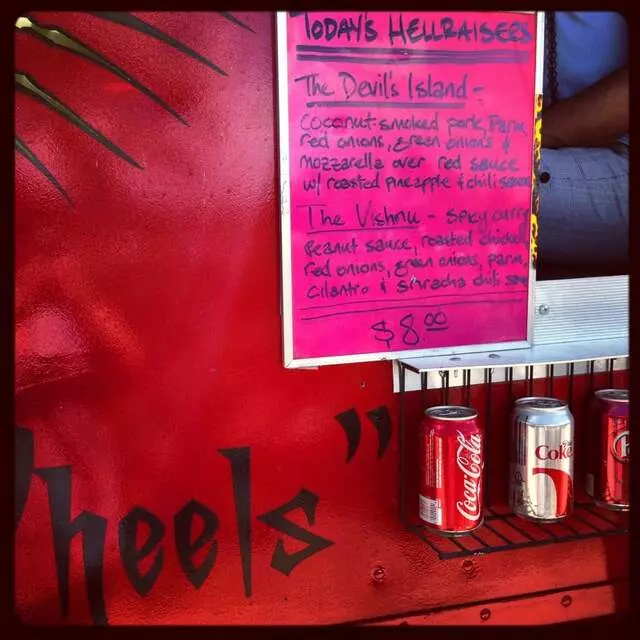 TODAY'S HELLRAISERS
The Devil's Island -
Coconut-smoked pork, Parm,
red onions, green onions &
mozzarella over red sauce
w/ roasted pineapple & chili sauce
The Vishnu - spicy curry
Peanut sauce, roasted chicken,
red onions, green onions, parm,
Cilantro & sriracha chili
$8.00
heels"
Coca-Cola
Coke